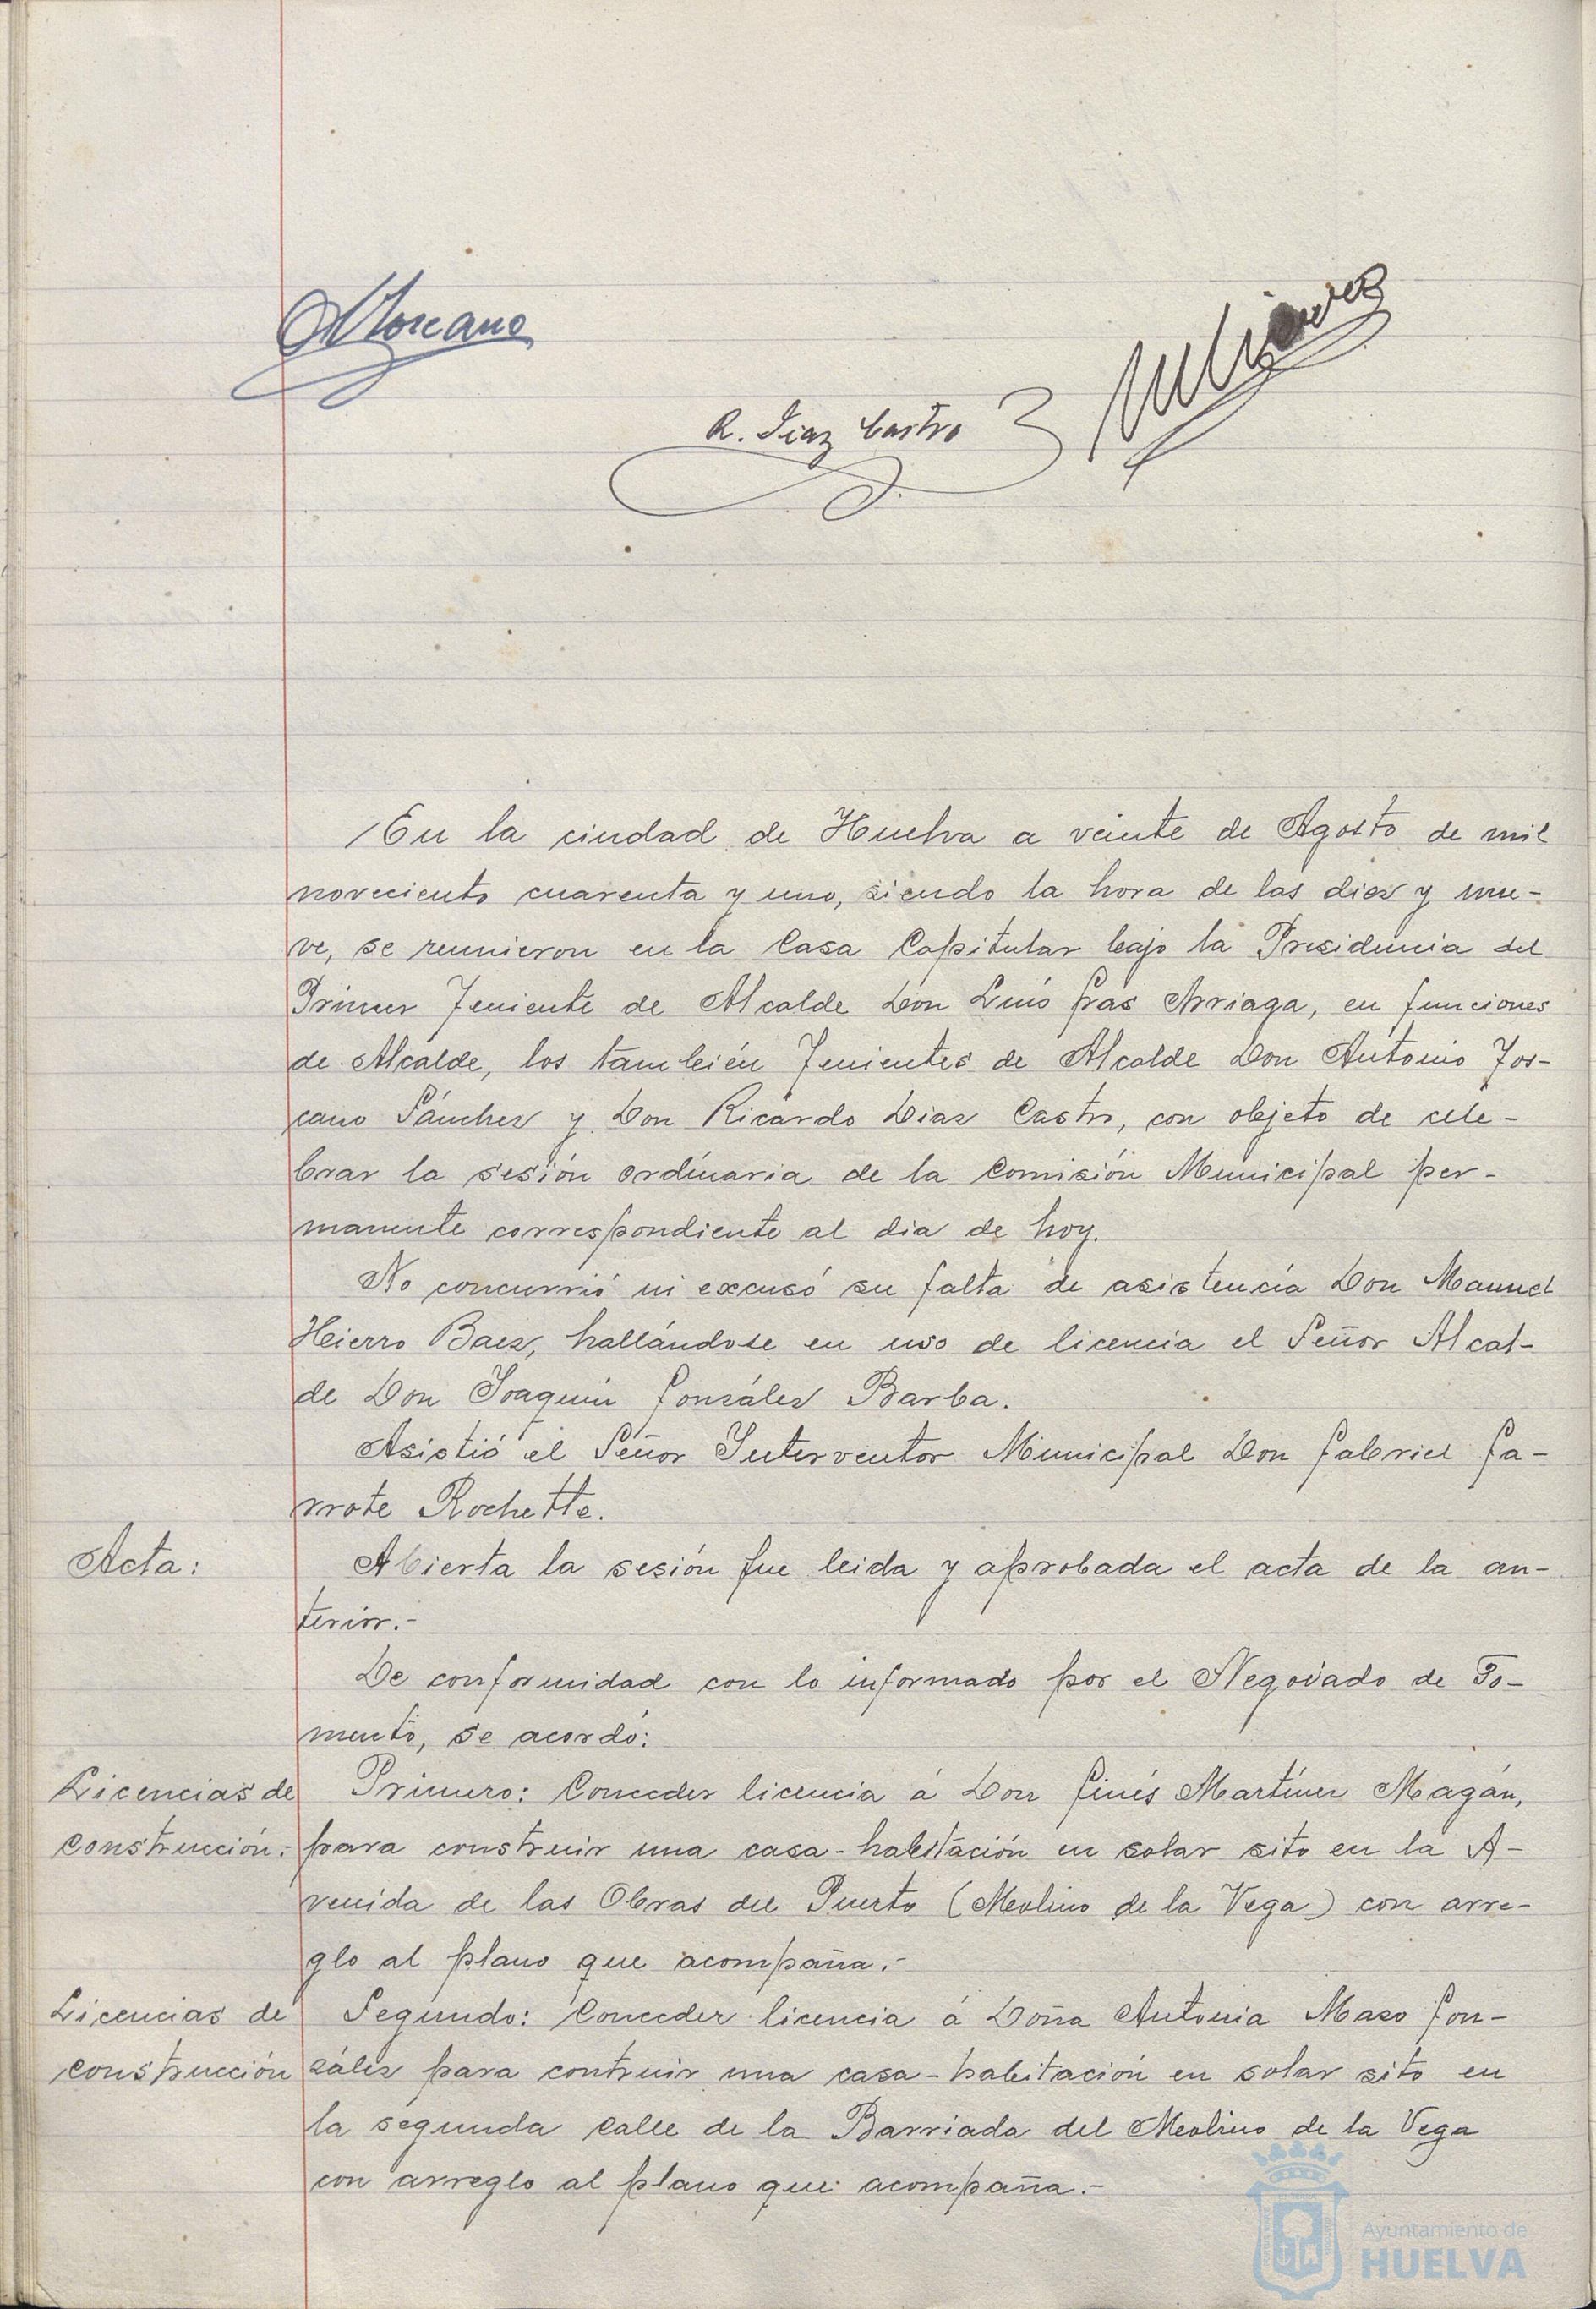 AToscano
R. Diaz Castro
En la ciudad de Huelva a veinte de Agosto de mil
noveciento cuarenta y uno, siendo la hora de las diez y nue-
ve, se reunieron en la Casa Capitular bajo la Presidencia del
Primer Teniente de Alcalde Don Luis Gras Arriaga, en funciones
de Alcalde, los también Tenientes de Alcalde Don Antonio Tos-
cano Sánchez y Don Ricardo Diaz Castro, con objeto de cele-
brar la sesión ordinaria de la Comisión Municipal per-
manente correspondiente al dia de hoy.
No concurrió ni excusó su falta de asistencia Don Manuel
Hierro Baez, hallándose en uso de licencia el Señor Alcal-
de Don Joaquin González Barba.
Asistió el Señor Interventor Municipal Don Gabriel Ga-
rrote Rochette.
Acta: Abierta la sesión fue leida y aprobada el acta de la an-
terior.-
De conformidad con lo informado por el Negociado de Fo-
mento, se acordó:
Licencias de Primero: Conceder licencia á Don Ginés Martínez Magán,
construcción.- para construir una casa-habitación en solar sito en la A-
venida de las Obras del Puerto (Molino de la Vega) con arre-
glo al plano que acompaña.-
Licencias de Segundo: Conceder licencia á Doña Antonia Mazo Gon-
construcción zález para contruir una casa-habitación en solar sito en
la segunda calle de la Barriada del Molino de la Vega
con arreglo al plano que acompaña.-
Ayuntamiento de
HUELVA